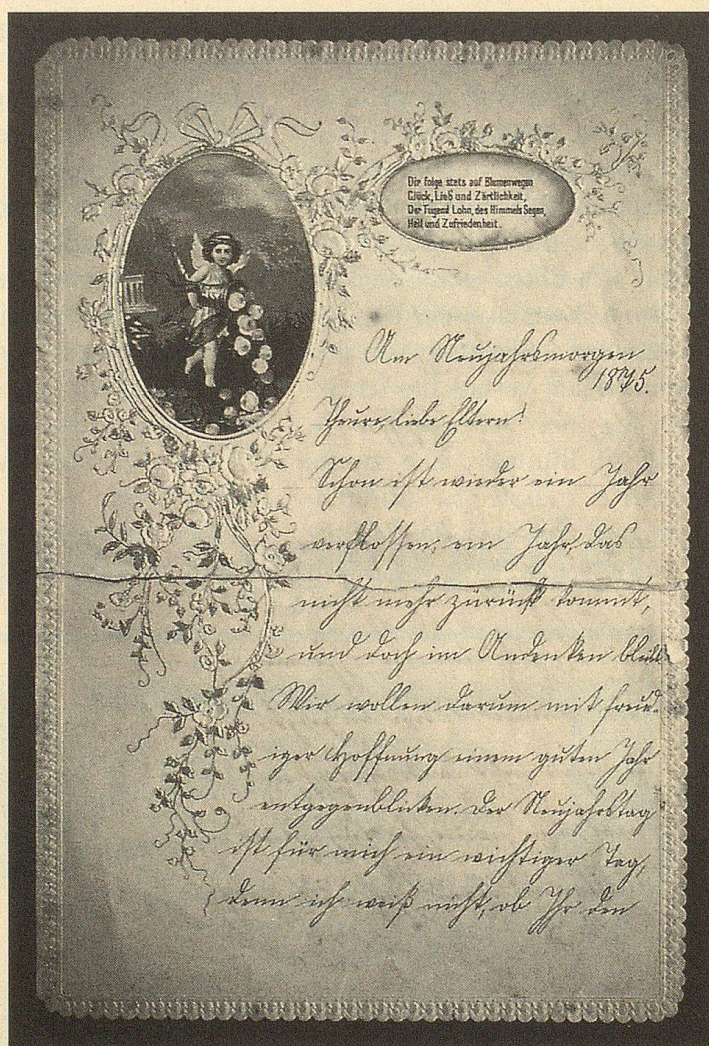 Dir folge stets auf Blumenwegen
Glück, Lieb und Zärtlichkeit,
Der Tugend Lohn, des Himmels Segen,
Heil und Zufriedenheit.
Am Neujahrsmorgen
1875.
Theure, liebe Eltern!
Schon ist wieder ein Jahr
verflossen, ein Jahr, das
nicht mehr zürück kommt,
und doch im Andenken bleibt.
Wir wollen darum mit freud-
iger Hoffnung einem guten Jahr
entgegenblicken. Der Neujahrstag
ist für mich ein wichtiger Tag,
denn ich weiß nicht, ob Ihr den